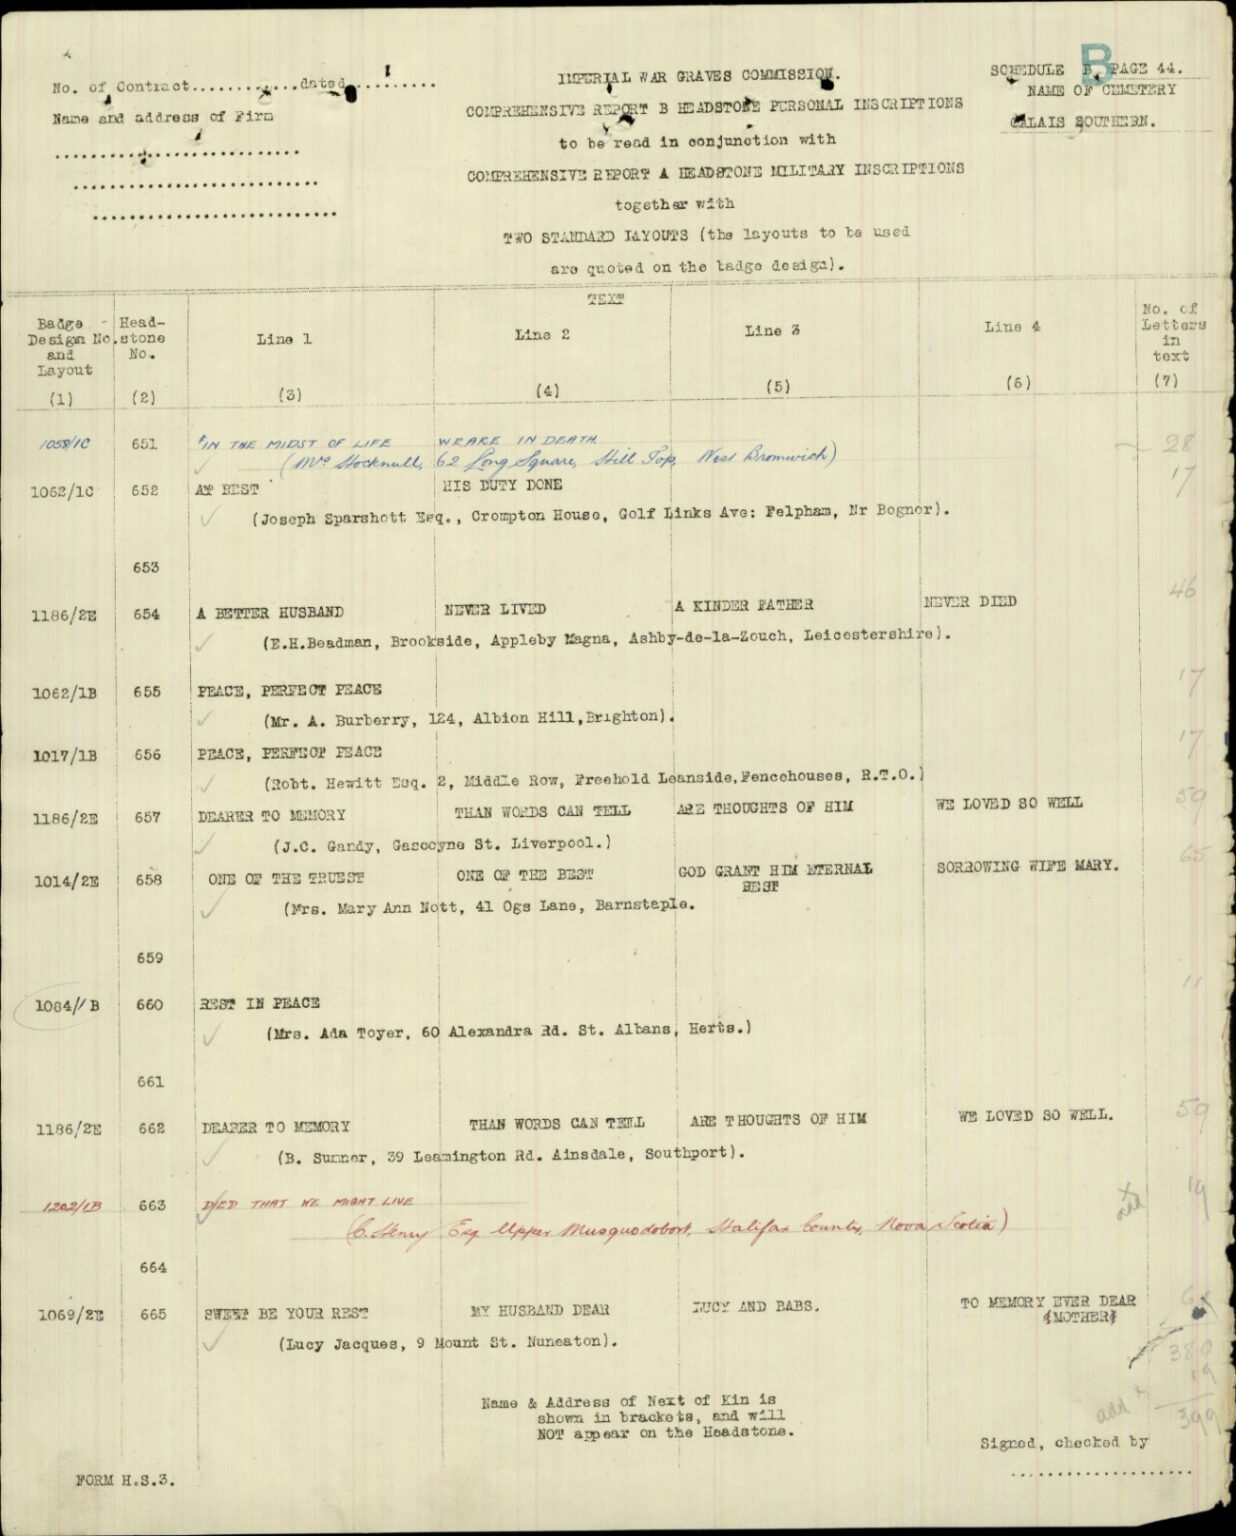 B
No. of Contract.............dated...........
IMPERIAL WAR GRAVES COMMISSION.
SCHEDULE B, PAGE 44.
NAME OF CEMETERY
Name and address of Firm
COMPREHENSIVE REPORT B HEADSTONE PERSONAL INSCRIPTIONS
CALAIS SOUTHERN.
to be read in conjunction with
COMPREHENSIVE REPORT A HEADSTONE MILITARY INSCRIPTIONS
together with
TWO STANDARD LAYOUTS (the layouts to be used
are quoted on the badge design).
TEXT
Badge Design No. and Layout Head-stone No. Line 1 Line 2 Line 3 Line 4 No. of Letters in text
(1) (2) (3) (4) (5) (6) (7)
1058/1C 651 "IN THE MIDST OF LIFE WE ARE IN DEATH 28
(Mrs Stocknull, 62 Long Square, Hill Top, West Bromwich)
1062/1C 652 AT REST HIS DUTY DONE 17
(Joseph Sparshott Esq., Crompton House, Golf Links Ave: Felpham, Nr Bognor).
653
1186/2E 654 A BETTER HUSBAND NEVER LIVED A KINDER FATHER NEVER DIED 46
(E.H.Beadman, Brookside, Appleby Magna, Ashby-de-la-Zouch, Leicestershire).
1062/1B 655 PEACE, PERFECT PEACE 17
(Mr. A. Burberry, 124, Albion Hill,Brighton).
1017/1B 656 PEACE, PERFECT PEACE 17
(Robt. Hewitt Esq. 2, Middle Row, Freehold Leanside,Fencehouses, R.T.O.)
1186/2E 657 DEARER TO MEMORY THAN WORDS CAN TELL ARE THOUGHTS OF HIM WE LOVED SO WELL 59
(J.C. Gandy, Gascoyne St. Liverpool.)
1014/2E 658 ONE OF THE TRUEST ONE OF THE BEST GOD GRANT HIM ETERNAL REST SORROWING WIFE MARY. 65
(Mrs. Mary Ann Nott, 41 Ogs Lane, Barnstaple.
659
1084/1B 660 REST IN PEACE 11
(Mrs. Ada Toyer, 60 Alexandra Rd. St. Albans, Herts.)
661
1186/2E 662 DEARER TO MEMORY THAN WORDS CAN TELL ARE THOUGHTS OF HIM WE LOVED SO WELL. 59
(B. Sumner, 39 Leamington Rd. Ainsdale, Southport).
1202/1B 663 DIED THAT WE MIGHT LIVE add 19
(C. Henry Esq Upper Musquodobort, Halifax County, Nova Scotia)
664
1069/2E 665 SWEET BE YOUR REST MY HUSBAND DEAR LUCY AND BABS. TO MEMORY EVER DEAR
(MOTHER)
(Lucy Jacques, 9 Mount St. Nuneaton).
380
add 19
399
Name & Address of Next of Kin is
shown in brackets, and will
NOT appear on the Headstone.
Signed, checked by
FORM H.S.3.